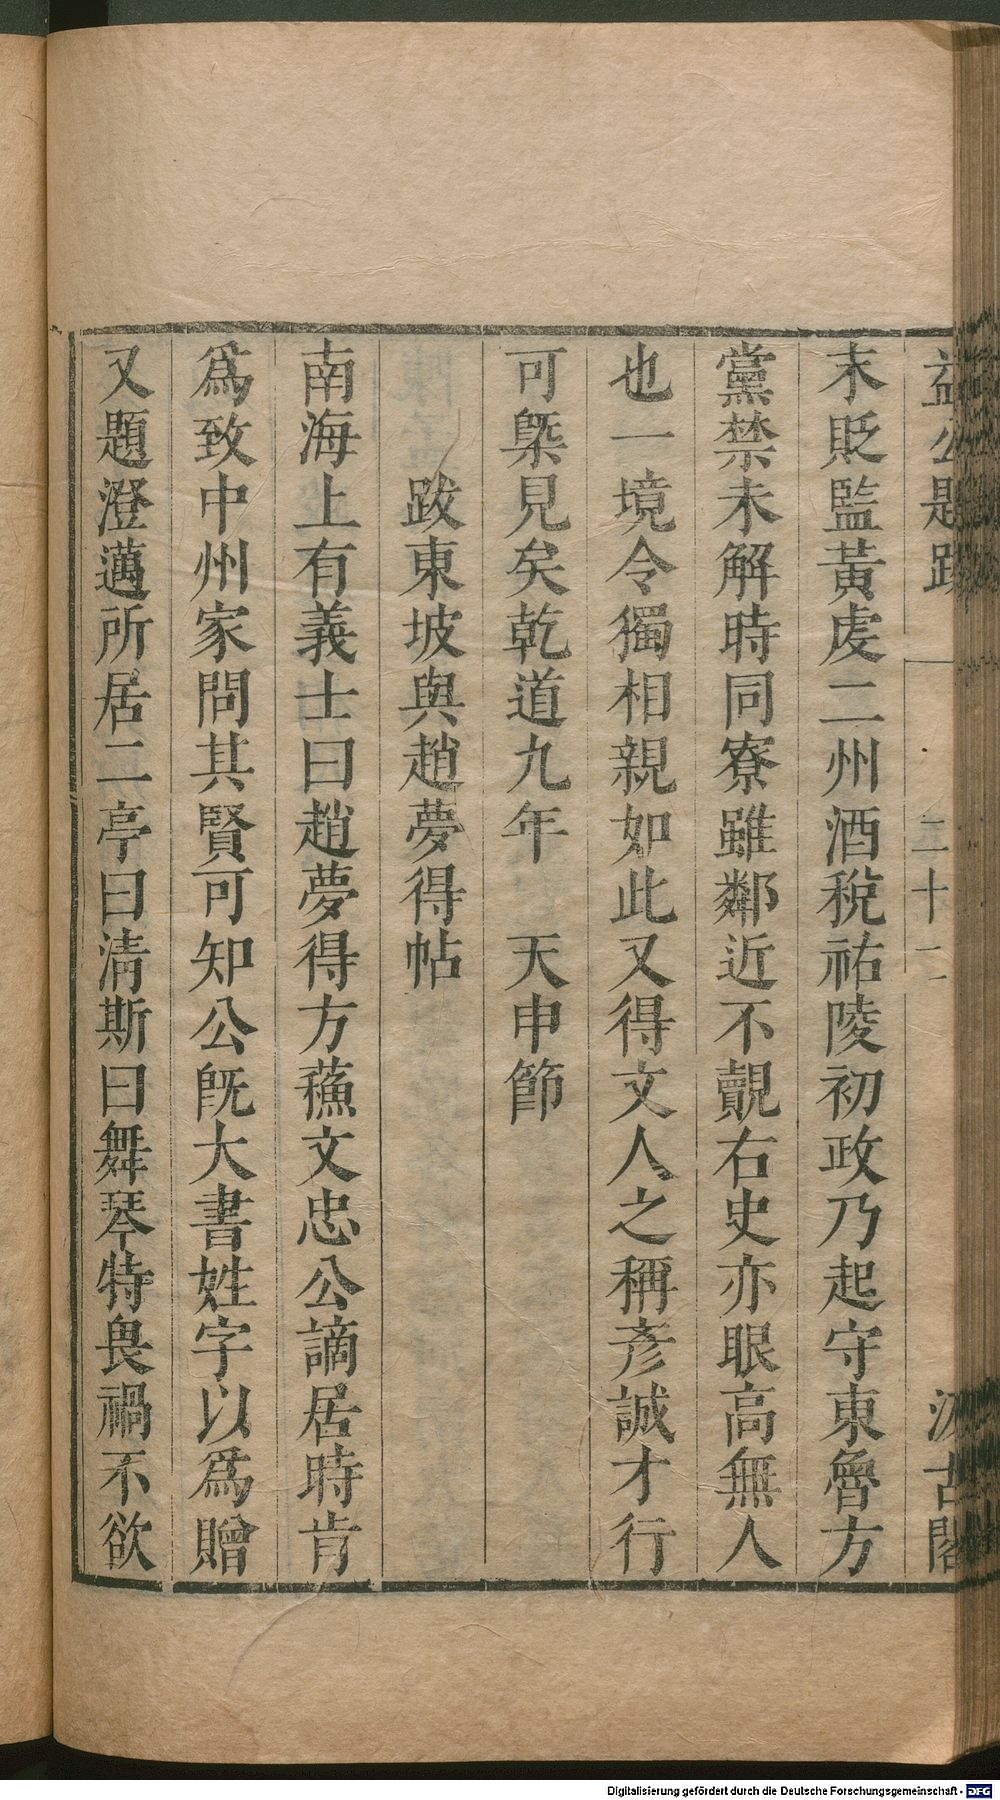 益公題跋 二十一 汲古閣
末貶監黃䖍二州酒稅祐陵初政乃起守東魯方
黨禁未解時同寮雖鄰近不覿右史亦眼高無人
也一境令獨相親如此又得文人之稱彥誠才行
可槩見矣乾道九年 天申節
跋東坡與趙夢得帖
南海上有義士曰趙夢得方蘓文忠公謫居時肯
爲致中州家問其賢可知公旣大書姓字以爲贈
又題澄邁所居二亭曰清斯曰舞琴特畏禍不欲
Digitalisierung gefördert durch die Deutsche Forschungsgemeinschaft - DFG